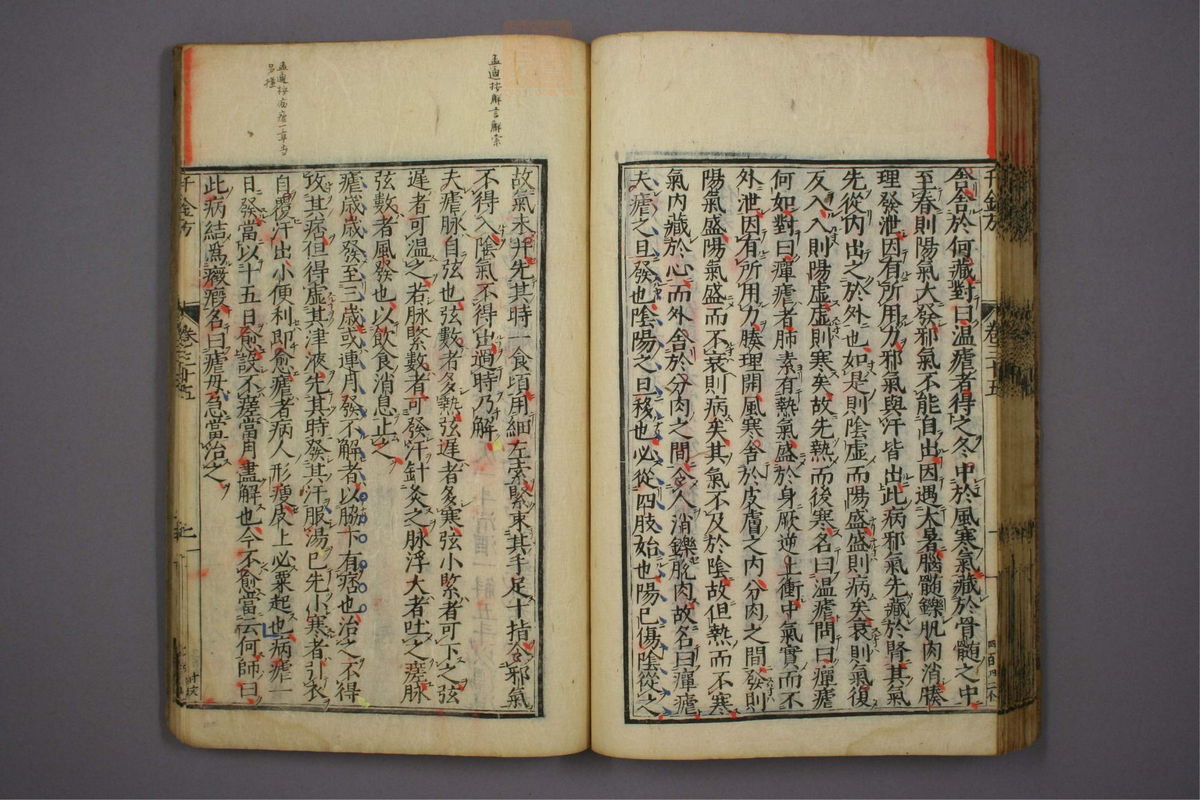 舍舍於何藏對曰溫瘧者得之冬中於風寒氣藏於骨髓之中
至春則陽氣大發邪氣不能自出因遇大暑腦髓鑠肌肉消腠
理發泄因有所用力邪氣與汗皆出此病邪氣先藏於腎其氣
先從內出之於外也如是則陰虛而陽盛盛則病矣衰則氣復
反入入則陽虛虛則寒矣故先熱而後寒名曰溫瘧問曰癉瘧
何如對曰癉瘧者肺素有熱氣盛於身厥逆上衝中氣實而不
外泄因有所用力腠理開風寒舍於皮膚之內分肉之間發則
陽氣盛陽氣盛而不衰則病矣其氣不及於陰故但熱而不寒
氣內藏於心而外舍於分肉之間令人消鑠肌肉故名曰癉瘧
夫瘧之且發也陰陽之且移也必從四肢始也陽已傷陰從之
故氣未并先其時一食頃用細左索緊束其手足十指令邪氣
不得入陰氣不得出過時乃解
夫瘧脉自弦也弦數者多熱弦遲者多寒弦小緊者可下之弦
遲者可溫之若脉緊數者可發汗針灸之脉浮大者吐之瘥脉
弦數者風發也以飲食消息止之
瘧歲歲發至三歲或連月發不解者以脇下有痞也治之不得
攻其痞但得虛其津液先其時發其汗服湯已先小寒者引衣
自覆汗出小便利即愈瘧者病人形瘦皮上必粟起也病瘧一
日發當以十五日愈設不瘥當月盡解也今不愈當云何師曰
此病結為癥瘕名曰瘧母急當治之
千金方
卷三十五
千金方
卷三十五
孟迪按解言解索